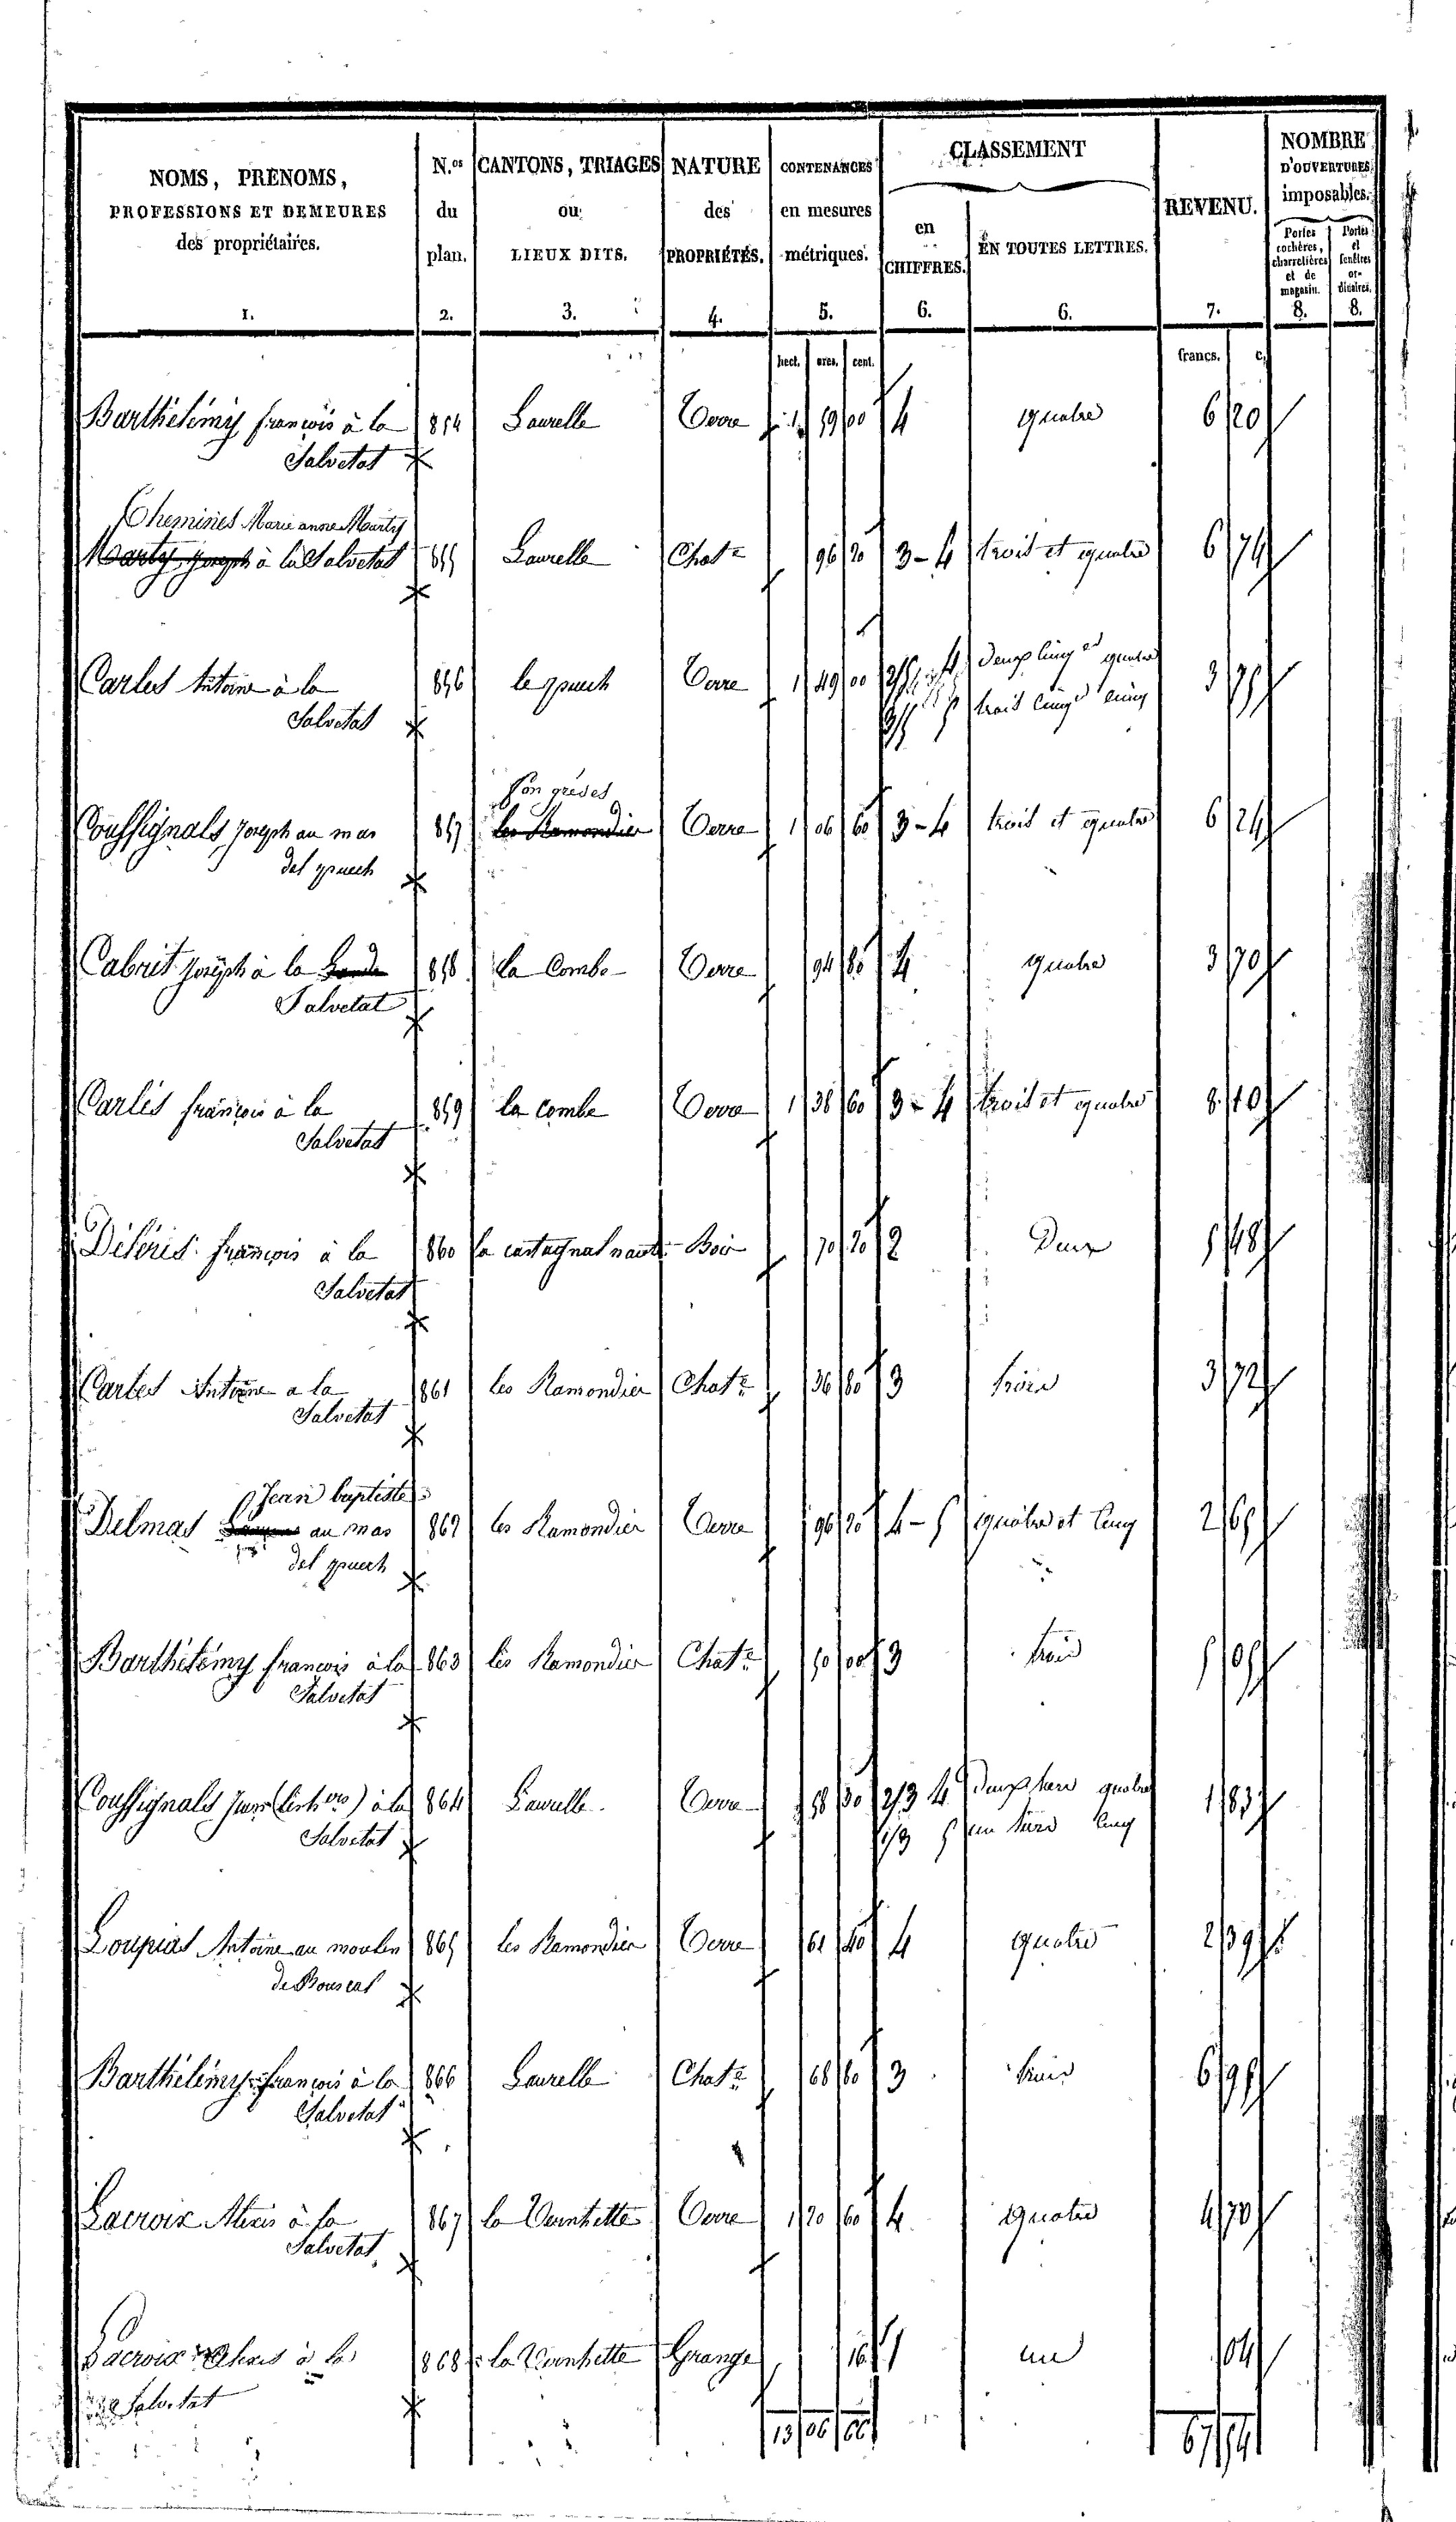 NOMS, PRENOMS, PROFESSIONS ET DEMEURES des propriétaires. 1.
N.os du plan. 2.
CANTONS, TRIAGES ou LIEUX DITS. 3.
NATURE des PROPRIÉTÉS. 4.
CONTENANCES en mesures métriques. 5.
CLASSEMENT
en CHIFFRES. 6.
EN TOUTES LETTRES. 6.
REVENU. 7.
NOMBRE D'OUVERTURES imposables.
Portes cochères, charretières et de magasin. 8.
Portes et fenêtres ordinaires. 8.
hect. ares. cent. francs. c.
Barthélémy françois à la 854 Laurelle Terre 1 59 00 4 quatre 6 20
Salvetat
Cheminés Marie anne Marty
Marty Joseph à la Salvetat 855 Laurelle Chat.e 96 20 3-4 trois et quatre 6 74
Carles Antoine à la 856 le puech Terre 1 49 00 2/5 4 deux cinq es quatre 3 75
Salvetat 3/5 5 trois cinq es cinq
Fon grèdes
Couffignals Joseph au mas 857 les Ramondier Terre 1 06 60 3-4 trois et quatre 6 24
del puech
Cabrit Joseph à la 858 la Combe Terre 94 80 4 quatre 3 70
Salvetat
Carles françois à la 859 la combe Terre 1 38 60 3-4 trois et quatre 8 10
Salvetat
Déléris françois à la 860 la castagnal naut Bois 70 20 2 Deux 5 48
Salvetat
Carles Antoine a la 861 les Ramondier Chat.e 36 80 3 trois 3 72
Salvetat
Jean baptiste
Delmas au mas 862 les Ramondier Terre 96 20 4-5 quatre et cinq 2 65
del puech
Barthélémy francois à la 863 les Ramondier Chat.e 50 00 3 trois 5 05
Salvetat
Couffignals Jean (les hers) à la 864 Laurelle Terre 58 30 2/3 4 deux tiers quatre 1 83
Salvetat 1/3 5 un tiers cinq
Loupias Antoine au moulin 865 les Ramondier Terre 61 40 4 quatre 2 39
de Bouscal
Barthélémy françois à la 866 Laurelle Chat.e 68 80 3 trois 6 95
Salvetat
Lacroix Alexis à la 867 la Vernhette Terre 1 20 60 4 quatre 4 70
Salvetat
Lacroix Alexis à la 868 la Vernhette Grange 16 1 un 04
Salvetat
13 06 66 67 54